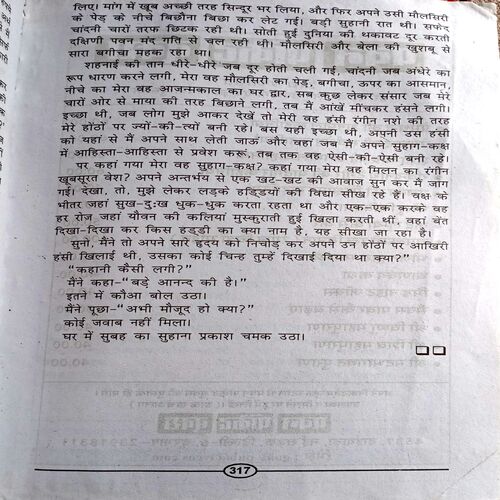 लिए। मांग में खूब अच्छी तरह सिन्दूर भर लिया, और फिर अपने उसी मौलसिरी
के पेड़ के नीचे बिछौना बिछा कर लेट गई। बड़ी सुहानी रात थी। सफेद
चांदनी चारों तरफ छिटक रही थी। सोती हुई दुनिया की थकावट दूर करती
दक्षिणी पवन मंद गति से चल रही थी। मौलसिरी और बेला की खुशबू से
सारा बगीचा महक रहा था।
शहनाई की तान धीरे-धीरे जब दूर होती चली गई, चांदनी जब अंधेरे का
रूप धारण करने लगी, मेरा वह मौलसिरी का पेड़, बगीचा, ऊपर का आसमान,
नीचे का मेरा वह आजन्मकाल का घर द्वार, सब कुछ लेकर संसार जब मेरे
चारों ओर से माया की तरह बिछाने लगी, तब मैं आंखें मींचकर हंसने लगी।
इच्छा थी, जब लोग मुझे आकर देखें तो मेरी वह हंसी रंगीन नशे की तरह
मेरे होंठों पर ज्यों-की-त्यों बनी रहे। बस यही इच्छा थी, अपनी उस हंसी
को यहां से मैं अपने साथ लेती जाऊं और वहां जब मैं अपने सुहाग-कक्ष
में आहिस्ता-आहिस्ता से प्रवेश करूं, तब तक वह ऐसी-की-ऐसी बनी रहे।
पर कहां गया मेरा वह सुहाग-कक्ष? कहां गया मेरा वह मिलन का रंगीन
खूबसूरत वेश? अपने अन्तर्भय से एक खट-खट की आवाज सुन कर मैं जाग
गई। देखा, तो, मुझे लेकर लड़के हड्डियों की विद्या सीख रहे हैं। वक्ष के
भीतर जहां सुख-दुःख धुक-धुक करता रहता था और एक-एक करके वह
हर रोज़ जहां यौवन की कलियां मुस्कुराती हुई खिला करती थीं, वहां बेंत
दिखा-दिखा कर किस हड्डी का क्या नाम है, यह सीखा जा रहा है।
सुनो, मैंने तो अपने सारे हृदय को निचोड़ कर अपने उन होंठों पर आखिरी
हंसी खिलाई थी, उसका कोई चिन्ह तुम्हें दिखाई दिया था क्या?”
“कहानी कैसी लगी?”
मैंने कहा—“बड़े आनन्द की है।”
इतने में कौआ बोल उठा।
मैंने पूछा—“अभी मौजूद हो क्या?”
कोई जवाब नहीं मिला।
घर में सुबह का सुहाना प्रकाश चमक उठा।
317